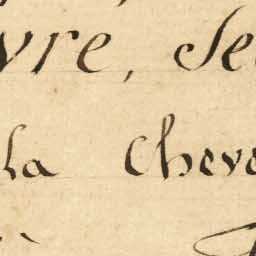 vre, Se
La Cheve